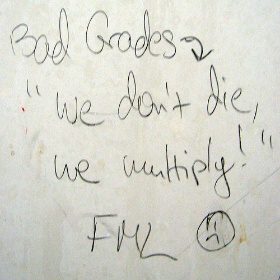 Bad Grades
"we don't die,
we multiply!"
FML